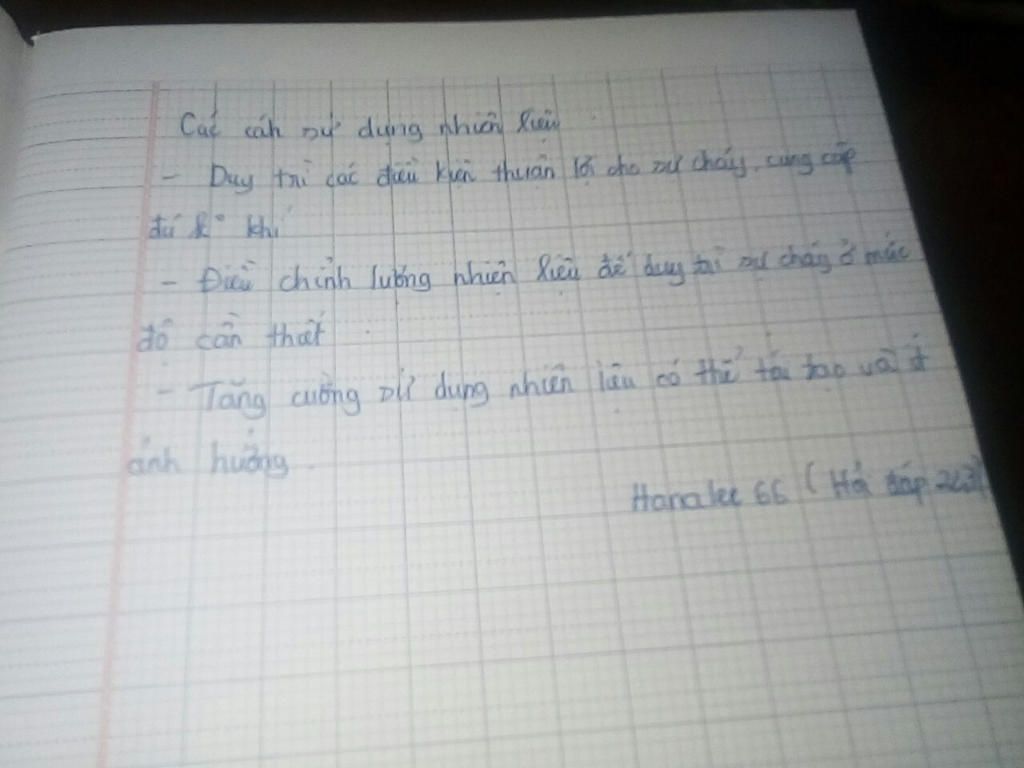 Các cách sử dụng nhiên liệu
- Duy trì các điều kiện thuận lợi cho sự cháy, cung cấp
đủ k° khí
- Điều chỉnh lượng nhiên liệu để duy trì sự cháy ở mức
độ cần thiết
- Tăng cường sử dụng nhiên liệu có thể tái tạo và ít
ảnh hưởng
Hanalee 66 (Hỏi đáp 247)